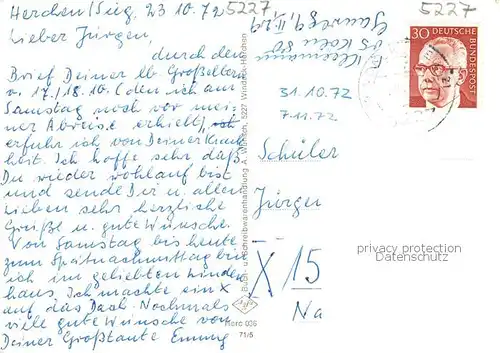 Herchen/Sieg, 23 10.72
5227
Lieber Jürgen,
durch den
Brief Deiner lb Großeltern
v. 17./18.10. (den ich am
Samstag noch vor mei-
ner Abreise erhielt),
erfuhr ich von Deiner Krank
heit. Ich hoffe sehr daß
Du wieder wohlauf bist
und sende Dir u. allen
Lieben sehr herzliche
Grüße u. gute Wünsche.
Von Samstag bis heute
zum Spätnachmittag bin
ich im geliebten Winden
haus. Ich machte ein X
auf das Dach. Nochmals
viele gute Wünsche von
Deiner Großtante Emmy
Buch- und Schreibwarenhandlung A. 5227 Windeck-Herchen
Herc 036
71/5
5227
30 DEUTSCHE
BUNDESPOST
31.10.72
7.11.72
Schüler
Jürgen
privacy protection
Datenschutz
X 15
Na